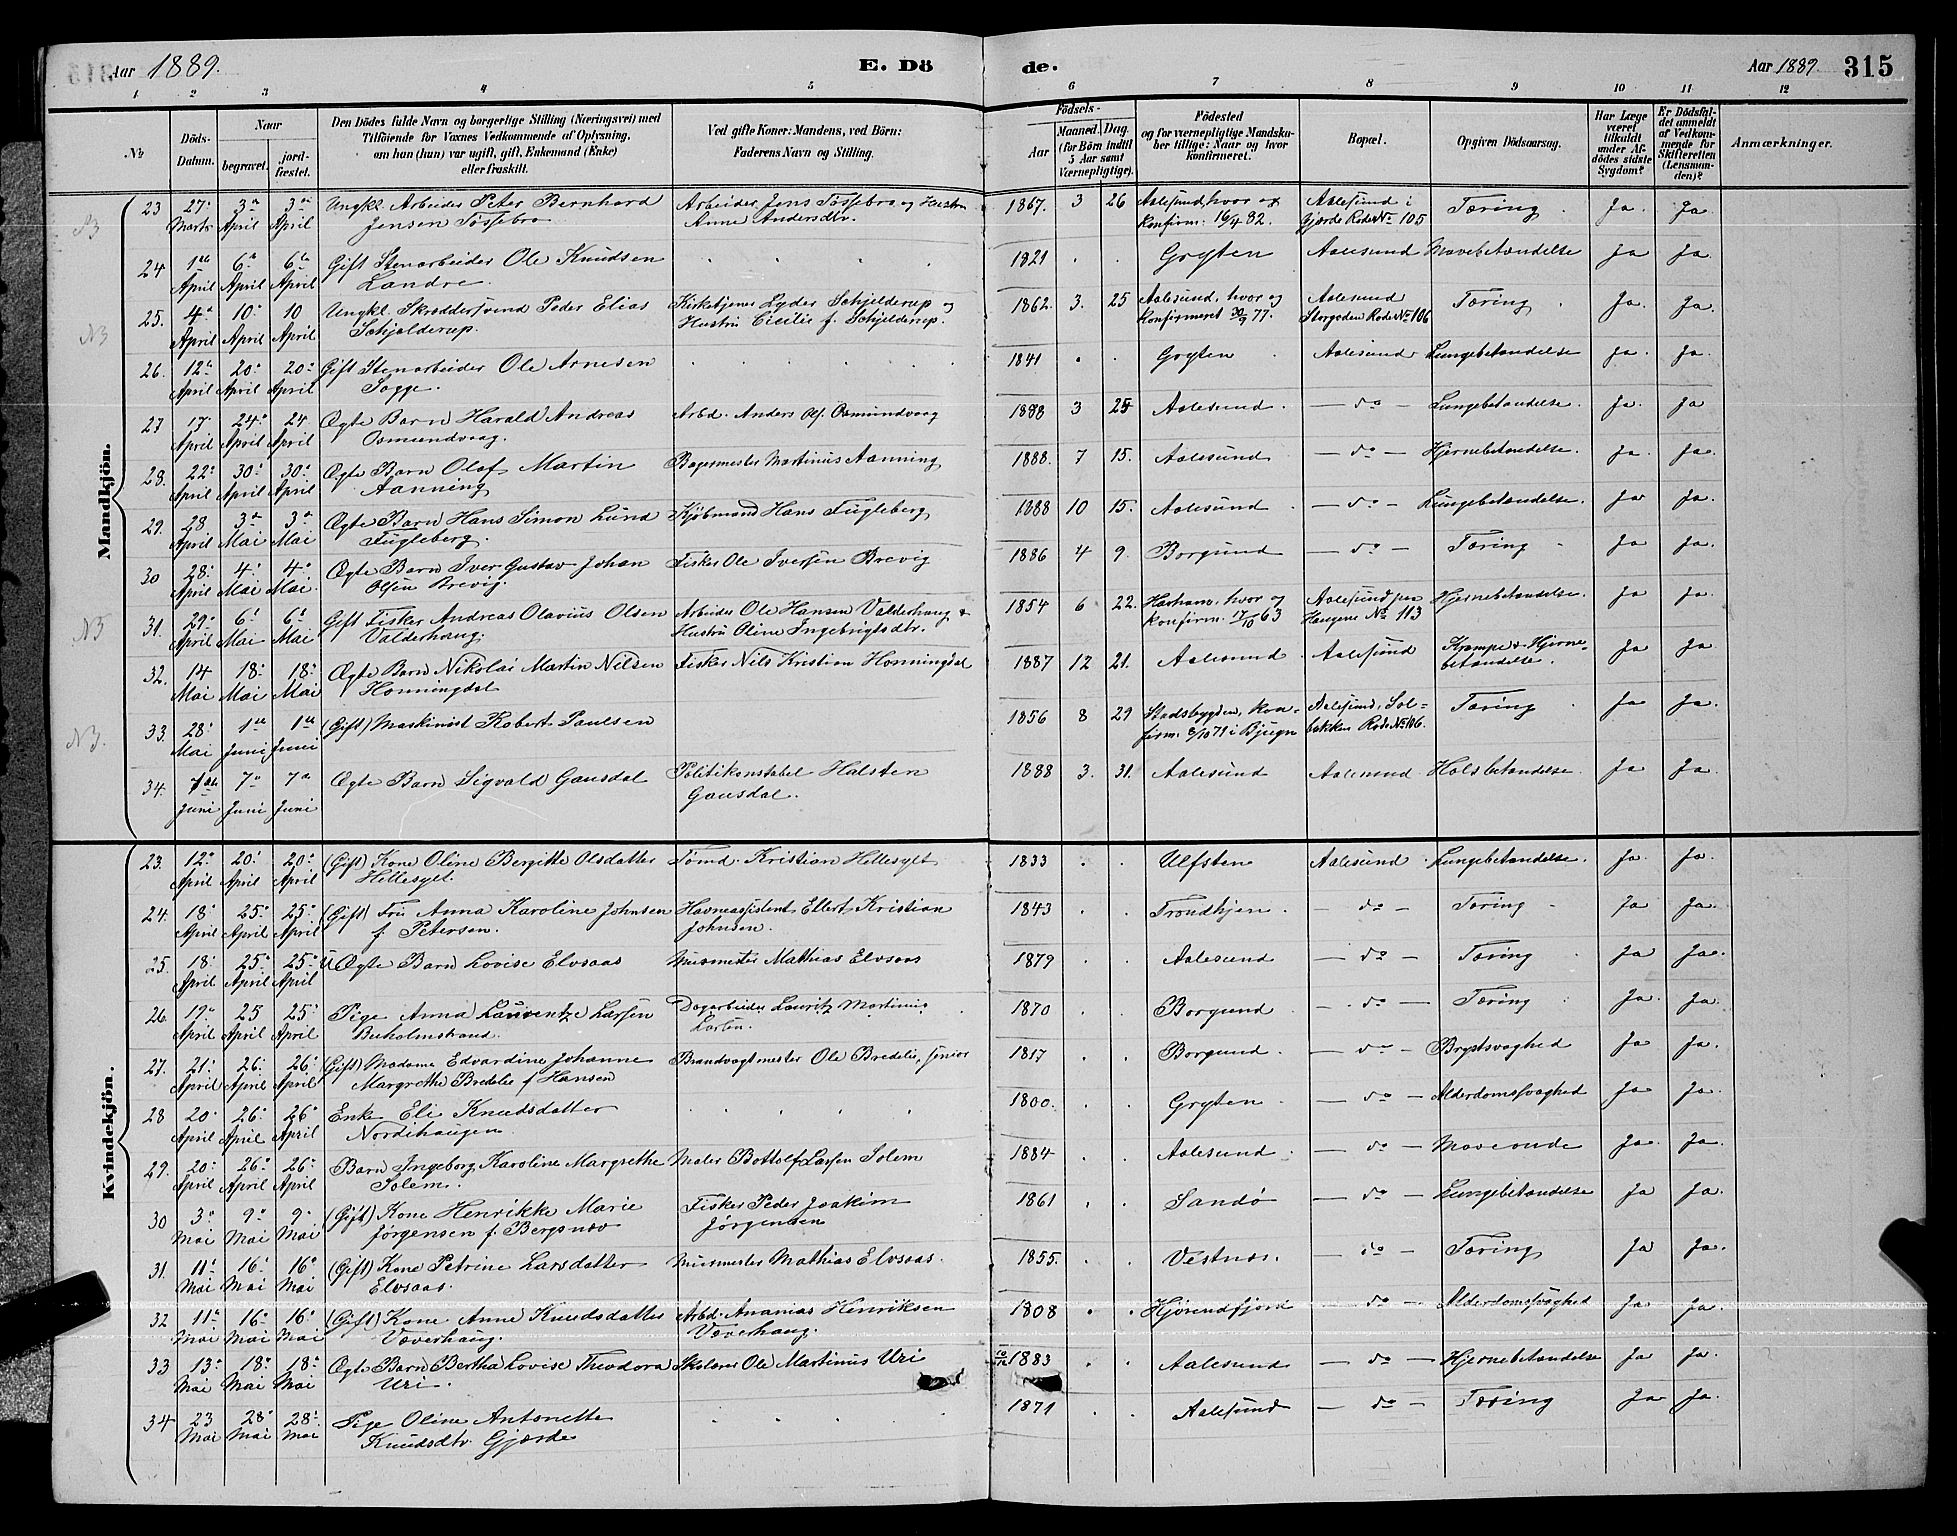 Aar 1889. E. Dö de. Aar 1889. 315
1 2 3 4 5 6 7 8 9 10 11 12
№
Döds-Datum.
Naar
begravet.
jord-fæstet.
Den Dödes fulde Navn og borgerlige Stilling (Næringsvei) med
Tilföiende for Voxnes Vedkommende af Oplysning,
om han (hun) var ugift, gift, Enkemand (Enke)
eller fraskilt.
Ved gifte Koner: Mandens, ved Börn:
Faderens Navn og Stilling.
Födsels-
Aar
Maaned. Dag.
(for Börn indtil
5 Aar samt
Værnepligtige).
Födested
og for værnepligtige Mandska-
ber tillige: Naar og hvor
konfirmeret.
Bopæl.
Opgiven Dödsaarsag.
Har Læge
været
tilkaldt
under Af-
dödes sidste
Sygdom?
Er Dödsfal-
det anmeldt
af Vedkom-
mende for
Skifteretten
(Lensman-
den)?
Anmærkninger.
Mandkjön.
23 27. 3die 3die Ungkl. Arbeider Peter Bernhard Arbeider Jens Tossebro og Hustru 1867. 3 26 Aalesund, hvor og Aalesund i Tæring Ja. Ja.
Marts April April Jensen Tossebro Anne Andersdtr. Konfirm. 16/4 82. Gjorde Rode No 105
24 1ste 6te 6te Gift Stenarbeider Ole Knudsen 1821 Grytten Aalesund Mavebetændelse Ja Ja.
April April April Landre.
25. 4de 10. 10 Ungkl. Skræddersvend Peder Elias Kirketjener Lyder Schjelderup og 1862. 3. 25 Aalesund, hvor og Aalesund Tæring Ja. Ja.
N3 April April April Schjelderup. Hustru Cicilie f. Schjelderup. Konfirmeret 30/9 77. Storgaden Rode No 106
26. 12te 20. 20. Gift Stenarbeider Ole Arnesen 1841 Grytten Aalesund Lungebetændelse Ja. Ja.
April April April Sogge.
27 17. 24. 24 Ægte Barn Harald Andreas Arbd. Anders Ols. Osmundvaag 1888 3 25 Aalesund. — do — Lungebetændelse. Ja. Ja
April April April Osmundvaag.
28. 22. 30. 30. Ægte Barn Olaf Martin Bagermester Martinus Aanning 1888. 7 15. Aalesund — do — Hjernebetændelse. Ja. Ja.
April April April Aanning
29. 28 3die 3die Ægte Barn Hans Simon Lund Kjöbmand Hans Fugleberg 1888 10 15. Aalesund — do — Lungebetændelse. Ja Ja.
April Mai Mai Fugleberg.
30 28. 4. 4. Ægte Barn Iver Gustav Johan Fisker Ole Iversen Brevig 1886 4 9. Borgund — do — Tæring Ja Ja.
April Mai Mai Olsen Brevig.
31. 29. 6. 6. Gift Fisker Andreas Olavius Olsen Arbeider Ole Hansen Valderhaug & 1854 6 22. Harham, hvor og Aalesund paa Hjernebetændelse. Ja Ja.
N3 April Mai Mai Valderhaug. Hustru Oline Ingebrigtsdtr. konfirm. 17/10 63 Haugene No 113
32. 14 18. 18. Ægte Barn Nikolai Martin Nilsen Fisker Nils Kristian Honningdal 1887 12 21. Aalesund Aalesund Krampe & Hjerne- Ja Ja
Mai Mai Mai Honningdal betændelse.
33. 28. 1ste 1ste (Gift) Maskinist Robert Paulsen 1856 8 29 Stadsbygden, kon- Aalesund, Sol- Tæring Ja Ja.
N3. Mai Juni Juni firm. 8/10 71 i Bjugn bakken Rode No 106.
34. 1ste 7de 7de Ægte Barn Sigvald Gausdal Politikonstabel Halsten 1888 3. 31. Aalesund Aalesund Halsbetændelse. Ja Ja.
Juni Juni Juni Gausdal.
Kvindekjön.
23. 12. 20. 20. (Gift) Kone Oline Bergitte Olsdatter Tömd. Kristian Hellesylt 1833 Ulfsten Aalesund Lungebetændelse. Ja. Ja.
April April April Hellesylt.
24. 18. 25. 25. (Gift) Fru Anna Karoline Johnsen Havneassistent Ellert Kristian 1843 Trondhjem — do — Tæring Ja Ja.
April April April f. Petersen. Johnsen.
25. 18. 25. 25. UÆgte Barn Lovise Elvsaas Murmester Mathias Elvsaas 1879 Aalesund — do — Tæring Ja Ja.
April April April
26. 19. 25 25. Pige Anna Laurentze Larsen Dagarbeider Lauritz Martinius 1870 Borgund — do — Tæring Ja. Ja.
April April April Buholmstrand. Larsen.
27. 21. 26. 26. (Gift) Madame Edvardine Johanne Brandvagtmester Ole Bredelie, senior 1817 Borgund — do — Brystsvaghed Ja Ja.
April April April Margrethe Bredelie f Hansen
28 20 26. 26. Enke Eli Knudsdatter 1800. Grytten — do — Alderdomssvaghed Ja Ja.
April April April Nordihaugen.
29. 20. 26. 26. Barn Ingeborg Karoline Margrethe Maler Bottolf Larsen Solem 1884 Aalesund — do — Maveonde Ja. Ja.
April April April Solem.
30 3. 9. 9. (Gift) Kone Henrikke Marie Fisker Peder Joakim 1861 Sandö — do — Lungebetændelse Ja Ja.
Mai Mai Mai Jørgensen f. Bergsnæv Jørgensen
31. 11. 16. 16. (Gift) Kone Petrine Larsdatter Murmester Mathias Elvsaas. 1855. Vestnæs. — do — Tæring Ja Ja.
Mai Mai Mai Elvsaas.
32 11. 16. 16. (Gift) Kone Anne Knudsdatter Arbd. Ananias Henriksen 1808 Hjørendfjord — do — Alderdomssvaghed Ja. Ja.
Mai Mai Mai Væverhaug. Væverhaug.
33 13. 18. 18. Ægte Barn Bertha Lovise Theodora Skolærer Ole Martinus Uri 1883 Aalesund — do — Hjernebetændelse Ja Ja.
Mai Mai Mai Uri.
34 23 28. 28. Pige Oline Antonette 1871 Aalesund — do — Tæring Ja Ja.
Mai Mai Mai Knudsdtr. Gjærde